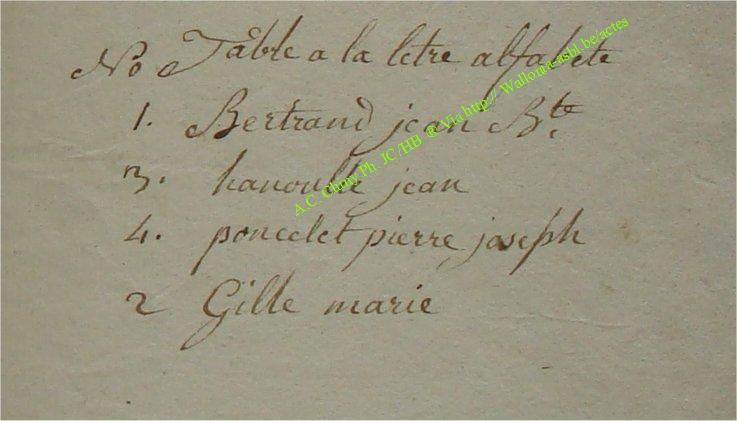 No Table a la letre alfabete
1. Bertrand jean Bte.
3. hanoulle jean
4. poncelet pierre joseph
2 Gille marie
A.C. Chiny Ph. JC /HB @ Via http:// Wallonia-asbl.be/actes